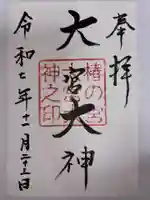 奉拝
大宮大神
椿の宮
神之印
令和七年十一月二十三日